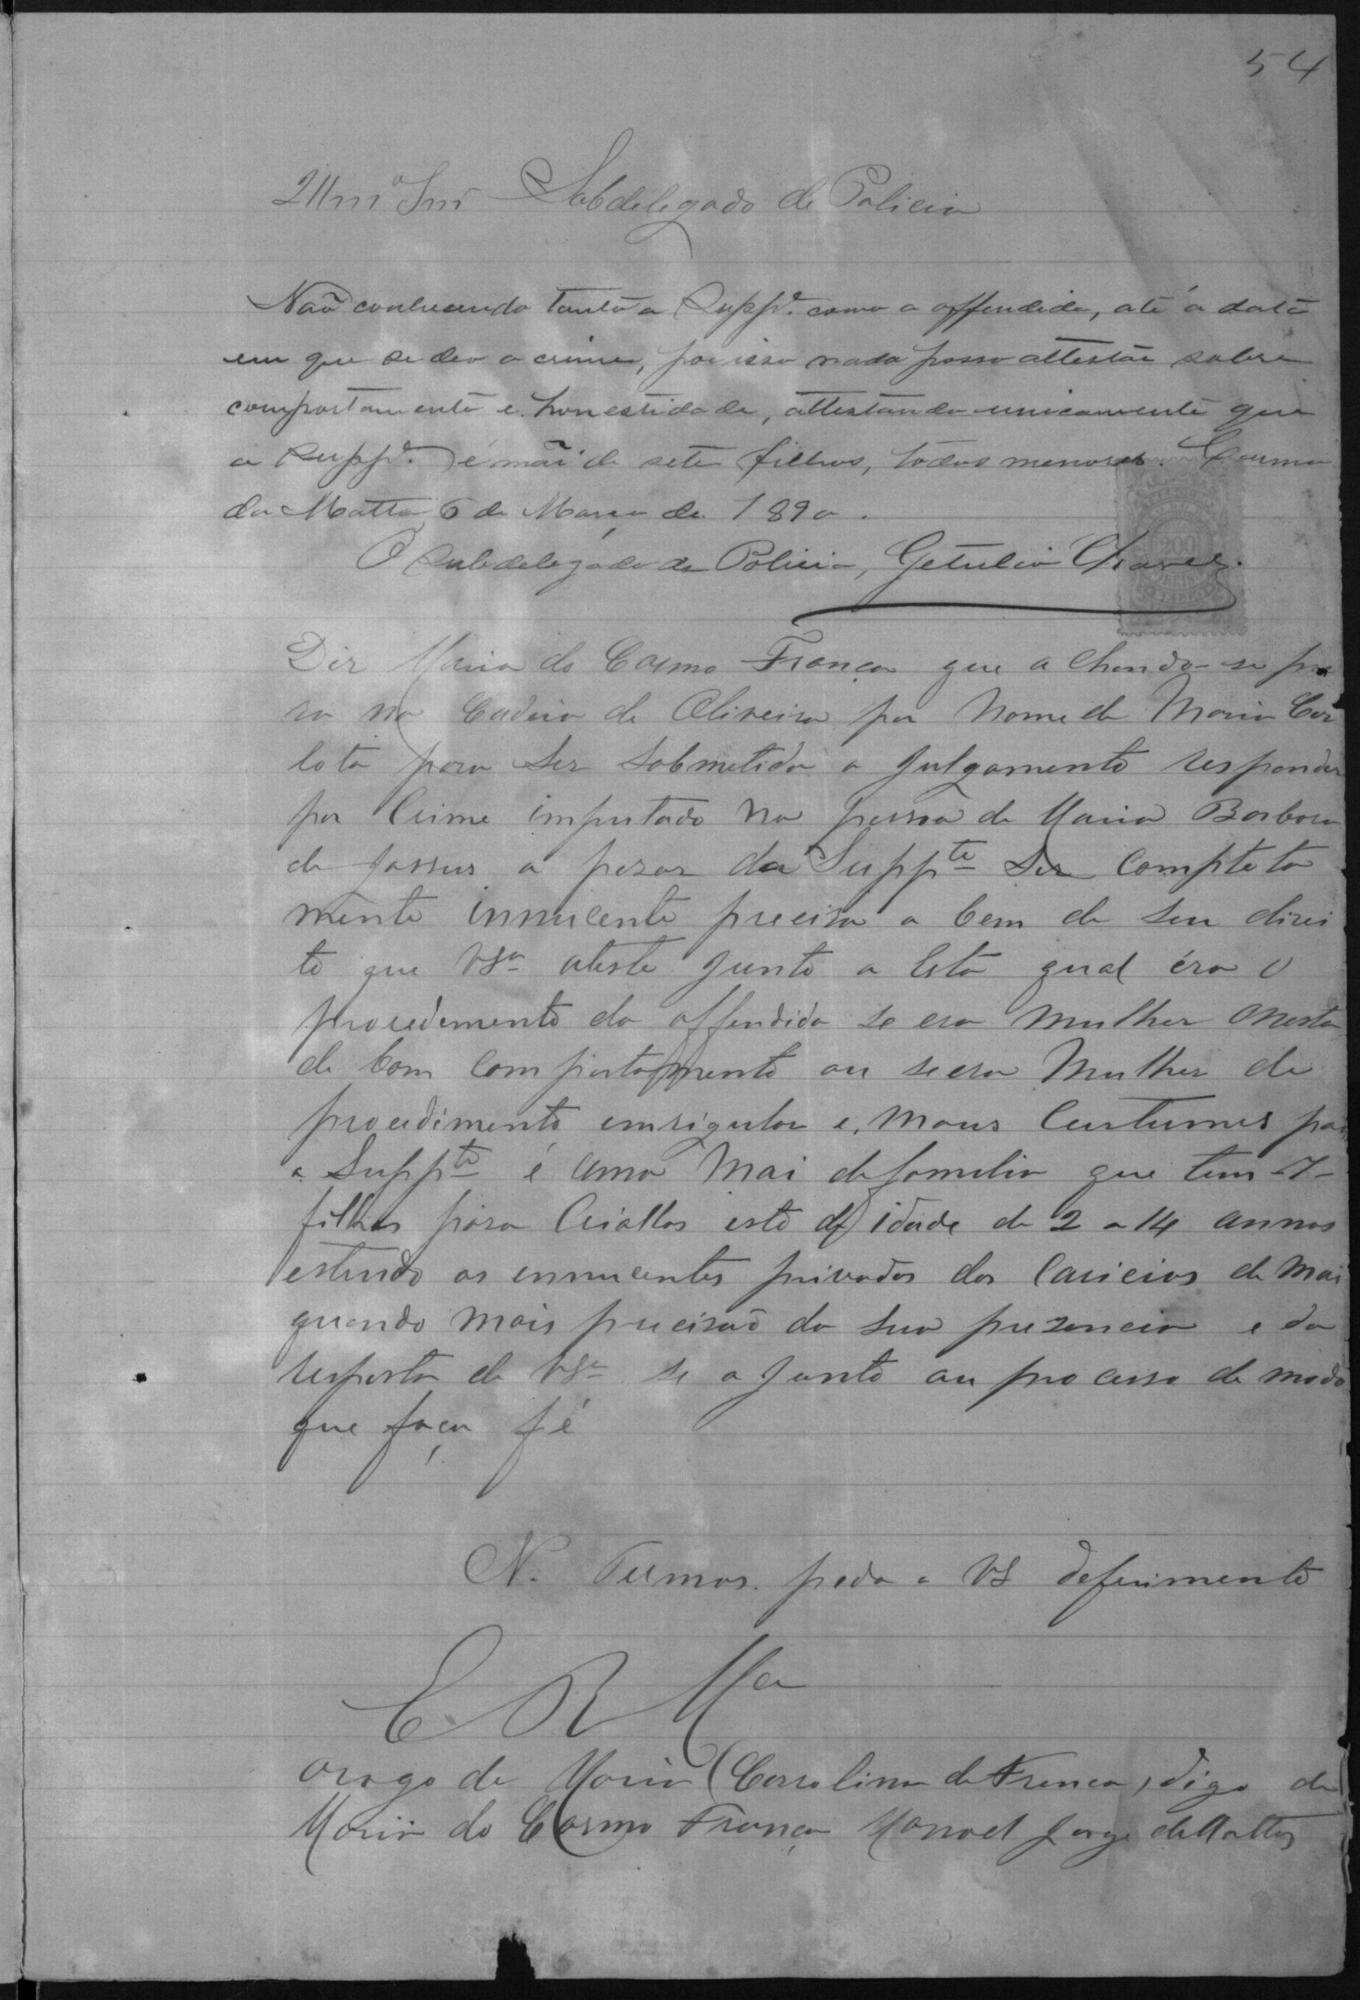 54
Illmº Snr Subdelegado de Policia
Não conhecendo tanto a Suppe. como a offendida, até a data
em que se deo o crime, por isso nada posso attestar sobre
comportamento e honestidade, attestando unicamente que
a Suppe. é mãi de sete filhos, todos menores. Carmo
da Matta 6 de Março de 1890.
O Subdelegado de Policia, Getulio Chaves.
200
Diz Maria do Carmo França que a chando-se pre
sa na Cadeia de Oliveira por Nome de Maria Car
lota para Ser Sobmetida a Julgamento responder
por Crime imputado na pessoa de Maria Barbosa
de Jassus a pezar da Suppte Ser Completa
mente innucente precisa a bem de Seu direi
to que VSa ateste junto a Esta qual éra o
procedemento da offendida se era Mulher Onesta
de bom Comportamento ou se era Mulher de
procedimento emrigular e Maus Custumes pois
a Suppte é uma Mai de familia que tem 7
filhos para Criallos isto de idade de 2 a 14 annos
estando os ennucentes privados dos Caricias de Mai
quando mais precisaõ da Sua prezencia e da
resposta de VSa se a junte au processo de modo
que faça fé
N. Termos. peda a VS deferimento
E R Mce
arogo de Maria Carrolina de Franca, digo de
Maria do Carmo França Manoel Jorge de Mattos